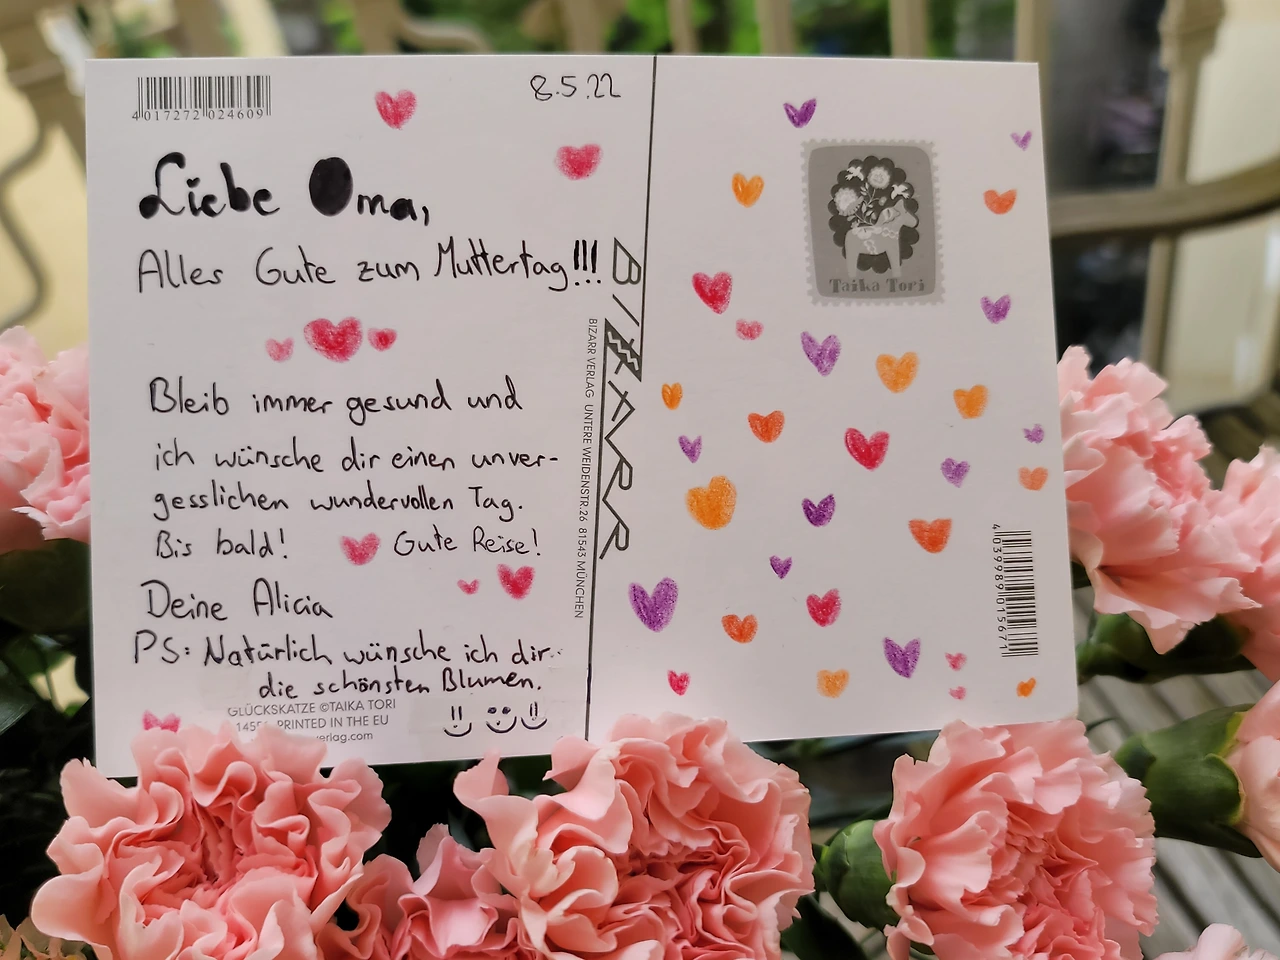 4 017272 024609
8.5.22
Liebe Oma,
Alles Gute zum Muttertag!!!
Bleib immer gesund und
ich wünsche dir einen unver-
gesslichen wundervollen Tag.
Bis bald! Gute Reise!
Deine Alicia
PS: Natürlich wünsche ich dir
die schönsten Blumen.
GLÜCKSKATZE ©TAIKA TORI
PRINTED IN THE EU
BIZARR
BIZARR VERLAG UNTERE WEIDENSTR.26 81543 MÜNCHEN
Taika Tori
4 039989 015671